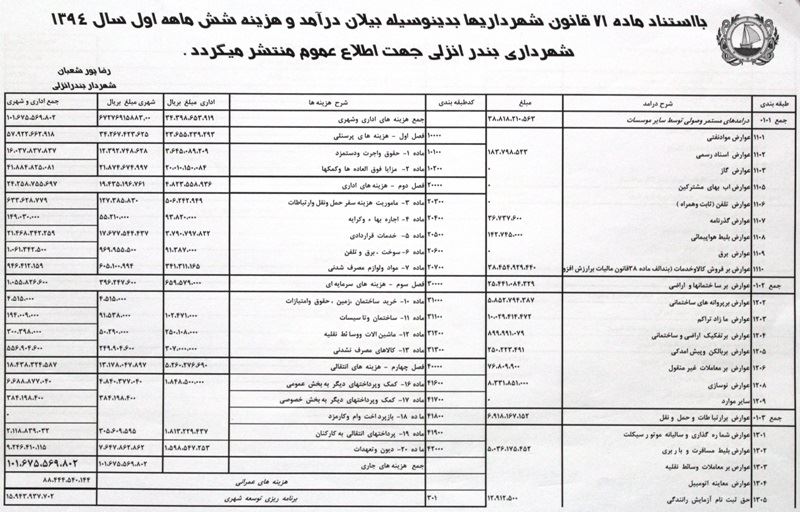 بااستناد ماده ۷۱ قانون شهرداریها بدینوسیله بیلان درآمد و هزینه شش ماهه اول سال ۱۳۹۴
شهرداری بندر انزلی جهت اطلاع عموم منتشر میگردد .
رضا پور شعبان
شهردار بندرانزلی
طبقه بندی شرح درآمد مبلغ کدطبقه بندی شرح هزینه ها اداری مبلغ بریال شهری مبلغ بریال جمع اداری و شهری
جمع ۰۱۰۱ درآمدهای مستمر وصولی توسط سایر موسسات ۳۸.۸۱۸.۲۱۰.۵۶۳ جمع هزینه های اداری وشهری ۳۴.۳۹۸.۶۵۳.۹۱۹ ۶۷۲۷۶۹۱۵۸۸۳.۰۰ ۱۰۱.۶۷۵.۵۶۹.۸۰۲
۱۱۰۱ عوارض موادنفتی ۱۰۰۰۰ فصل اول- هزینه های پرسنلی ۲۳.۶۵۵.۲۳۹.۲۹۳ ۳۴.۲۶۷.۴۲۳.۶۲۵ ۵۷.۹۲۲.۶۶۲.۹۱۸
۱۱۰۲ عوارض اسناد رسمی ۱۸۳.۷۹۸.۵۲۳ ۱۰۱۰۰ ماده ۱- حقوق واجرت ودستمزد ۳.۶۴۵.۰۸۹.۲۰۹ ۱۲.۳۹۲.۷۴۸.۶۲۸ ۱۶.۰۳۷.۸۳۷.۸۳۷
۱۱۰۳ عوارض گاز ۰ ۱۰۲۰۰ ماده ۲- مزایا فوق العاده ها وکمکها ۲۰.۰۱۰.۱۵۰.۰۸۴ ۲۱.۸۷۴.۶۷۴.۹۹۷ ۴۱.۸۸۴.۸۲۵.۰۸۱
۱۱۰۵ عوارض اب بهای مشترکین ۰ ۲۰۰۰۰ فصل دوم - هزینه های اداری ۴.۸۲۳.۵۵۸.۹۳۶ ۱۹.۴۳۵.۱۹۶.۷۶۱ ۲۴.۲۵۸.۷۵۵.۶۹۷
۱۱۰۶ عوارض تلفن (ثابت وهمراه ) ۰ ۲۰۳۰۰ ماده ۳- ماموریت هزینه سفر حمل ونقل وارتباطات ۵۰۶.۲۴۲.۹۴۹ ۱۲۷.۳۸۵.۸۳۰ ۶۳۳.۶۲۸.۷۷۹
۱۱۰۷ عوارض گذرنامه ۳۶.۷۳۷.۶۰۰ ۲۰۴۰۰ ماده ۴- اجاره بهاء وکرایه ۹۳.۸۲۰.۰۰۰ ۵۵.۲۱۰.۰۰۰ ۱۴۹.۰۳۰.۰۰۰
۱۱۰۸ عوارض بلیط هواپیمائی ۱۴۲.۷۴۵.۰۰۰ ۲۰۵۰۰ ماده ۵- خدمات قراردادی ۳.۷۹۰.۷۹۷.۸۲۲ ۱۷.۶۷۷.۵۴۴.۴۳۷ ۲۱.۴۶۸.۳۴۲.۲۵۹
۱۱۰۹ عوارض برق ۰ ۲۰۶۰۰ ماده ۶- سوخت ، برق و تلفن ۹۱.۳۸۷.۰۰۰ ۹۶۹.۹۵۵.۵۰۰ ۱.۰۶۱.۳۴۲.۵۰۰
۱۱۱۰ عوارض بر فروش کالاوخدمات (بندالف ماده ۳۸قانون مالیات برارزش افزو ۳۸.۴۵۴.۹۲۹.۴۴۰ ۲۰۷۰۰ ماده ۷- مواد ولوازم مصرف شدنی ۳۴۱.۳۱۱.۱۶۵ ۶۰۵.۱۰۰.۹۹۴ ۹۴۶.۴۱۲.۱۵۹
جمع ۰۱۰۲ عوارض بر ساختمانها و اراضی ۲۵.۴۴۱.۰۸۴.۳۲۹ ۳۰۰۰۰ فصل سوم - هزینه های سرمایه ای ۶۵۹.۵۷۹.۰۰۰ ۳۹۶.۲۴۷.۶۰۰ ۱.۰۵۵.۸۲۶.۶۰۰
۱۲۰۲ عوارض برپروانه های ساختمانی ۵.۸۵۲.۷۹۴.۳۸۷ ۳۱۰۰۰ ماده ۱۰- خرید ساختمان ،زمین ، حقوق وامتیازات ۴.۵۱۵.۰۰۰ ۴.۵۱۵.۰۰۰
۱۲۰۳ عوارض ما زاد تراکم ۱۰.۰۲۹.۴۱۴.۴۷۲ ۳۱۱۰۰ ماده ۱۱- ساختمان وتا سیسات ۱۰۲.۴۷۱.۰۰۰ ۹۱.۵۳۸.۰۰۰ ۱۹۴.۰۰۹.۰۰۰
۱۲۰۴ عوارض برتفکیک اراضی و ساختمانی ۸۹۹.۹۹۱.۰۷۹ ۳۱۲۰۰ ماده ۱۲- ماشین الات ووسائط نقلیه ۲۵۰.۱۰۸.۰۰۰ ۵۰.۲۹۰.۰۰۰ ۳۰۰.۳۹۸.۰۰۰
۱۲۰۵ عوارض بربالکن وپیش امدگی ۲۵۰.۲۲۳.۴۹۱ ۳۱۳۰۰ ماده ۱۳- کالاهای مصرف نشدنی ۳۰۷.۰۰۰.۰۰۰ ۲۴۹.۹۰۴.۶۰۰ ۵۵۶.۹۰۴.۶۰۰
۱۲۰۶ عوارض بر معاملات غیر منقول ۷۶.۸۰۹.۹۰۰ ۴۰۰۰۰ فصل چهارم - هزینه های انتقالی ۵.۲۶۰.۲۷۶.۶۹۰ ۱۳.۱۷۸.۰۴۷.۸۹۷ ۱۸.۴۳۸.۳۲۴.۵۸۷
۱۲۰۸ عوارض نوسازی ۸.۳۳۱.۸۵۱.۰۰۰ ۴۱۶۰۰ ماده ۱۶- کمک وپرداختهای دیگر به بخش عمومی ۱.۸۴۸.۵۰۰.۰۰۰ ۴.۸۴۰.۳۷۷.۰۴۰ ۶.۶۸۸.۸۷۷.۰۴۰
۱۲۰۹ سایر موارد ۰ ۴۱۷۰۰ ماده ۱۷- کمک وپرداختهای دیگر به بخش خصوصی ۳۸۴.۱۹۸.۴۰۰ ۳۸۴.۱۹۸.۴۰۰
جمع ۰۱۰۳ عوارض برارتباطات و حمل و نقل ۶.۹۱۸.۱۶۷.۱۵۲ ۴۱۸۰۰ ما ده ۱۸- بازپرداخت وام وکارمزد
۱۳۰۱ عوارض شما ره گذاری و سالیانه موتور سیکلت ۰ ۴۱۹۰۰ ماده ۱۹- پرداختهای انتقالی به کارکنان ۱.۸۱۳.۲۲۹.۴۳۷ ۳۰۵.۶۰۹.۵۹۵ ۲.۱۱۸.۸۳۹.۰۳۲
۱۳۰۲ عوارض بلیط مسافرت و با ربری ۵.۰۳۶.۱۷۵.۴۵۲ ۴۲۰۰۰ ماده ۲۰- دیون وتعهدات ۱.۵۹۸.۵۴۷.۲۵۳ ۷.۶۴۷.۸۶۲.۸۶۲ ۹.۲۴۶.۴۱۰.۱۱۵
۱۳۰۳ عوارض بر معاملات وسائط نقلیه جمع هزینه های جاری ۱۰۱.۶۷۵.۵۶۹.۸۰۲ ۱۰۱.۶۷۵.۵۶۹.۸۰۲
۱۳۰۴ عوارض معاینه اتومبیل هزینه های عمرانی ۸۸.۴۴۴.۵۴۰.۱۴۴
۱۳۰۵ حق ثبت نام آزمایش رانندگی ۱۲.۹۱۲.۵۰۰ ۳۰۱ برنامه ریزی توسعه شهری ۱۵.۹۴۳.۹۳۷.۷۰۲